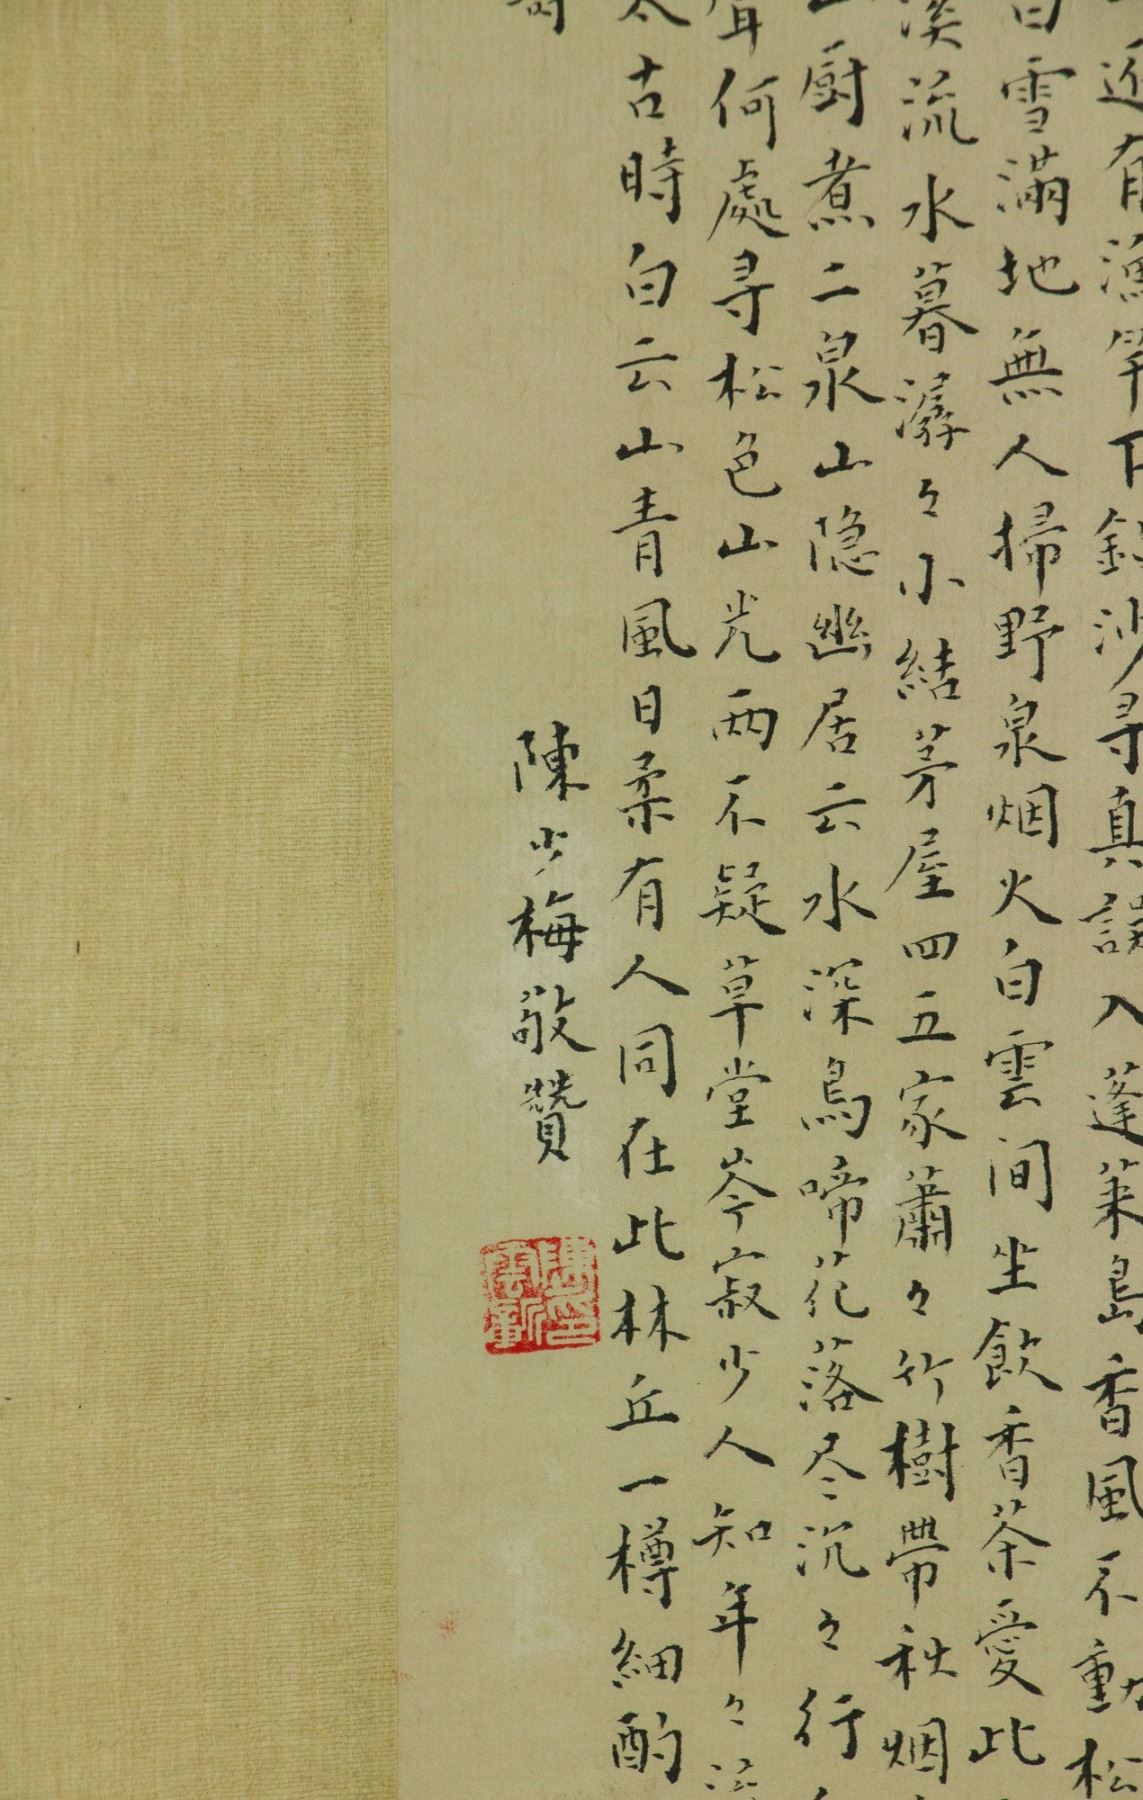 近有漁竿下釣沙尋真誤入蓬萊島香風不動松
白雪滿地無人掃野泉烟火白雲间坐飲香茶愛此
溪流水暮潺々小結茅屋四五家蕭々竹樹帶秋烟
厨煮二泉山隐幽居云水深鳥啼花落尽沉々行
聲何處寻松色山光兩不疑草堂岑寂少人知年々
太古時白云山青風日柔有人同在此林丘一樽細酌
陳少梅敬贊
陳雲彰印